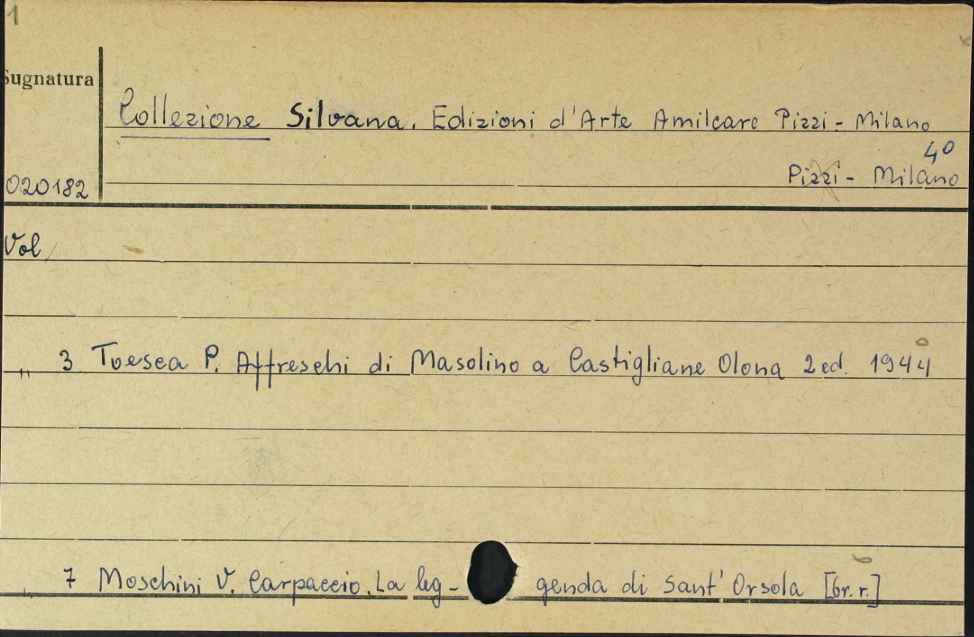 1
Sugnatura
Collezione Silvana. Edizioni d'Arte Amilcare Pizzi - Milano
40
020182 Pizzi - Milano
Vol
„ 3 Toesca P. Affreschi di Masolino a Castigliane Olona 2 ed. 1944
„ 7 Moschini V. Carpaccio. La leg- genda di Sant' Orsola [br. r.]